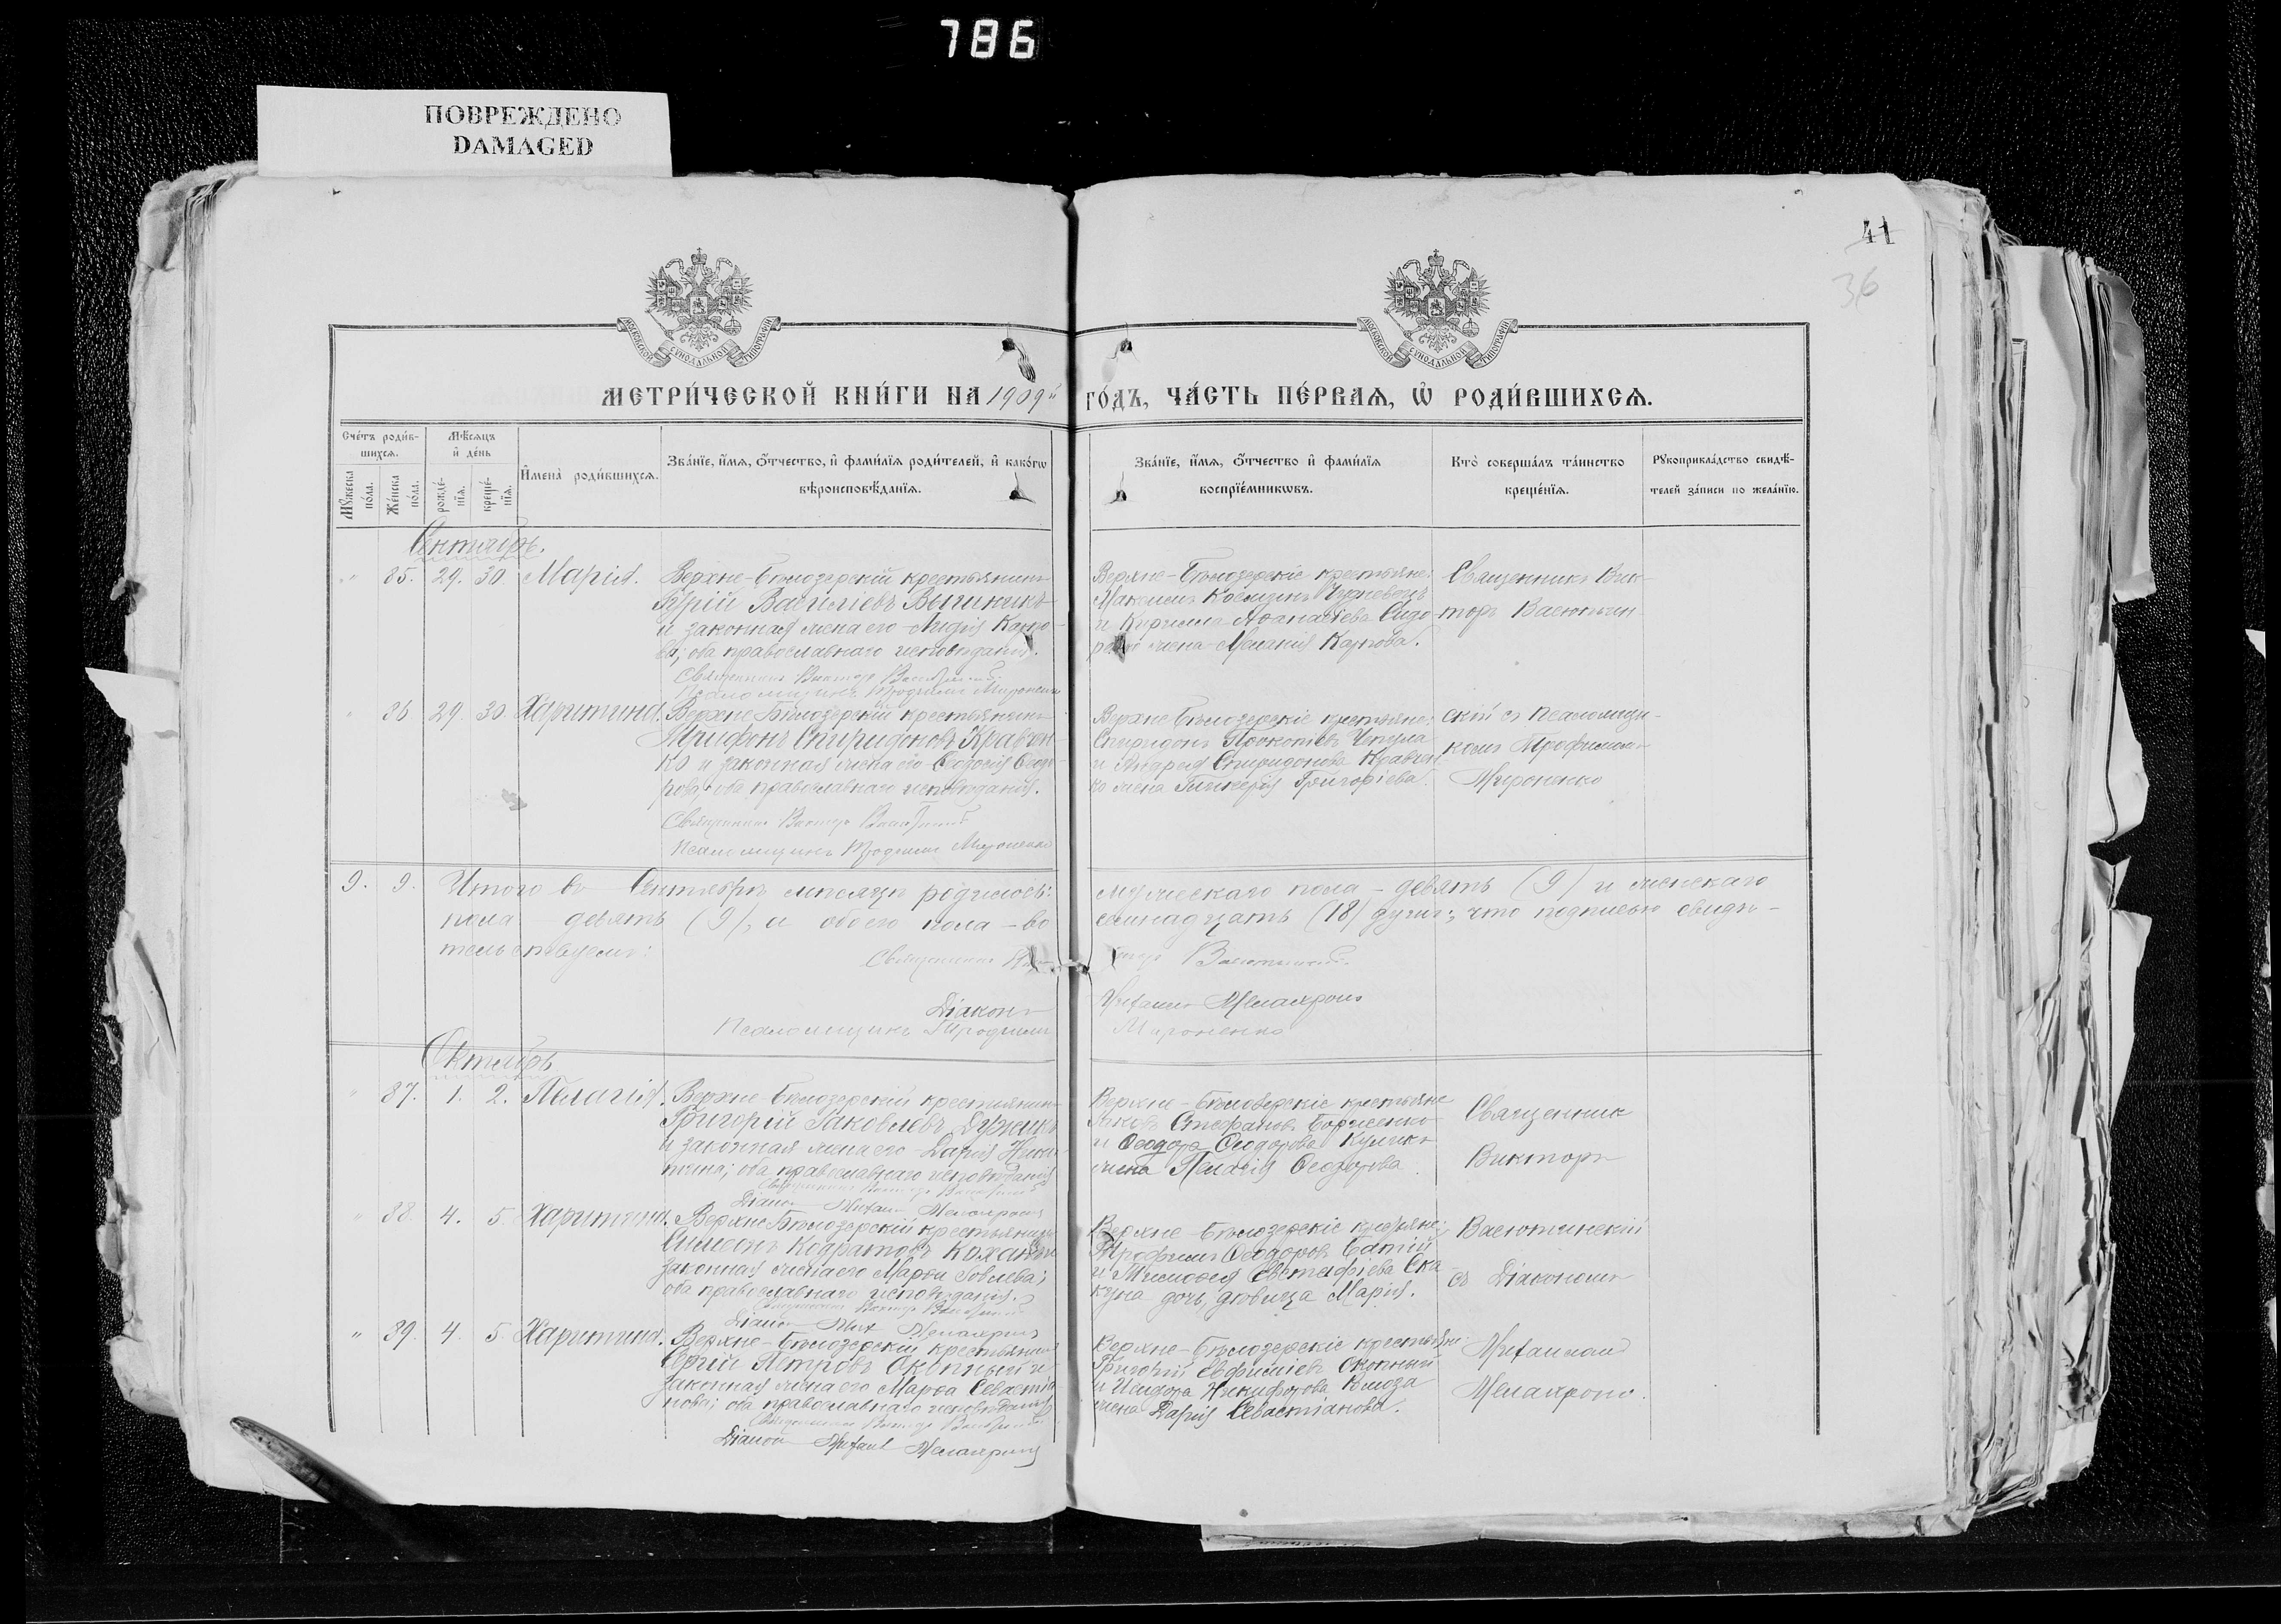 786
ПОВРЕЖДЕНО
DAMAGED
41
36
МОСКОВСКОЙ СѴНОДАЛЬНОЙ ТИПОГРАФІИ
МОСКОВСКОЙ СѴНОДАЛЬНОЙ ТИПОГРАФІИ
МЕТРИ́ЧЕСКОЙ КНИ́ГИ НА 1909й ГО́ДЪ, ЧА́СТЬ ПЕ́РВАѦ, Ѡ҆ РОДИ́ВШИХСѦ.
Сче́тъ роди́в-
шихсѧ.
Мѹ́жеска по́ла.
Же́нска по́ла.
Мѣ́сѧцъ
и҆ де́нь
рожде́-
нїѧ.
креще́-
нїѧ.
И҆мена̀ роди́вшихсѧ.
Зва́нїе, и҆́мѧ, ѻ҆́тчество, и҆ фами́лїѧ роди́телей, и҆ како́гѡ
вѣроисповѣ́данїѧ.
Зва́нїе, и҆́мѧ, ѻ҆́тчество и҆ фами́лїѧ
воспрїе́мникѡвъ.
Кто̀ соверша́лъ та́инство
креще́нїѧ.
Рѹкоприкла́дство свидѣ́-
телей за́писи по жела́нїю.
Сентябрь.
" 85. 29. 30. Марія.
Верхне-Бѣлозерскій крестьянинъ
Василіевъ
и законная жена его Лидія Карпо-
ва; оба православнаго исповѣданія.
Священникъ Викторъ Васютинскій
Псаломщикъ Трофимъ Мироненко
Верхне-Бѣлозерскіе крестьяне:
Максимъ Косминъ
и Кирилла Аѳанасіева Сидо-
жена Меланія Карпова.
Священникъ Вик-
торъ Васютин-
" 86 29. 30. Харитина.
Верхне-Бѣлозерскій крестьянинъ
Трифонъ Спиридоновъ Кравчен-
ко и законная жена его Ѳеодосія Ѳеодо-
рова оба православнаго исповѣданія.
Священникъ Викторъ Васютинскій
Псаломщикъ Трофимъ Мироненко
Верхне-Бѣлозерскіе крестьяне:
Спиридонъ Прокопіевъ
и Андрея Спиридонова Кравчен
ко жена Гликерія Григоріева.
скій съ псаломщи-
комъ Трофимомъ
Мироненко
9. 9. Итого въ Сентябрѣ мѣсяцѣ родилось: мужескаго пола - девять (9) и женскаго
пола девять (9), а обоего пола - во семнадцать (18) душъ; что подписью свидѣ-
тельствуемъ:
Священникъ Викторъ Васютинскій
Діаконъ Михаилъ Мелахроно
Псаломщикъ Трофимъ Мироненко
Октябрь
" 87. 1. 2. Пелагія.
Верхне-Бѣлозерскій крестьянинъ
Григорій Іаковлевъ
и законная жена его Дарія Ники-
тина; оба православнаго исповѣданія
Священникъ Викторъ Васютинскій
Діаконъ Михаилъ Мелахроно
Верхне-Бѣлозерскіе крестьяне
Іаковъ Стефановъ Борисенко
и Ѳеодора Ѳеодорова
жена Ѳеодорова.
Священник
Викторъ
" 88 4. 5. Харитина.
Верхне-Бѣлозерскій крестьянинъ
Симеонъ Кодратовъ
законная жена его Марѳа Іовлева;
оба православнаго исповѣданія.
Священникъ Викторъ Васютинскій
Діаконъ Мих Мелахроно
Верхне-Бѣлозерскіе крестьяне:
Трофимъ Ѳеодоровъ
и Тимоѳея Евстафіева Ска
куна дочь, дѣвица Марія.
Васютинскій
съ Діакономъ
" 89. 4. 5. Харитина.
Верхне-Бѣлозерскій крестьянинъ
Сергій Петровъ Окопный и
законная жена его Марѳа Севастіа
нова; оба православнаго исповѣданія
Священникъ Викторъ Васютинскій
Діаконъ Михаил Мелахроно
Верхне-Бѣлозерскіе крестьяне:
Григорій Евфиміевъ Окопный
и Исидора Никифорова
жена Дарія Севастіанова.
Михаилом
Мелахроно.